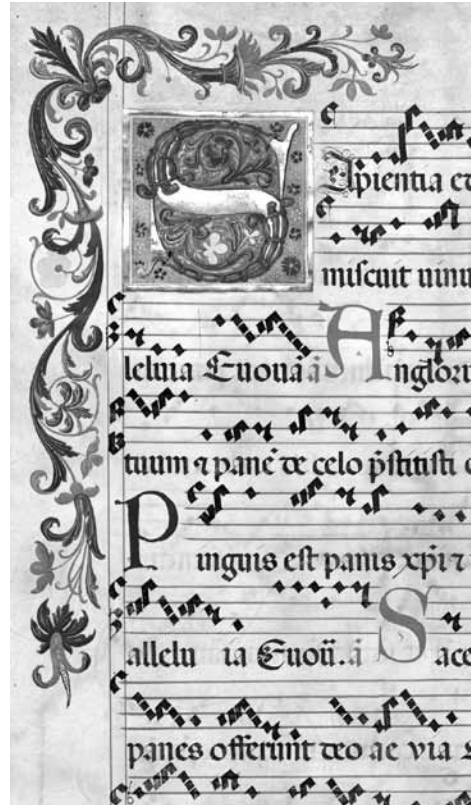 Sapientia et
miscuit uinu
leluia Euouae a Anglorũ
tuum ⁊ panē de celo p̃stitisti
Pinguis est panis xp̃i ⁊
allelu ia Euoũ. a Sace
panes offerunt deo ac via